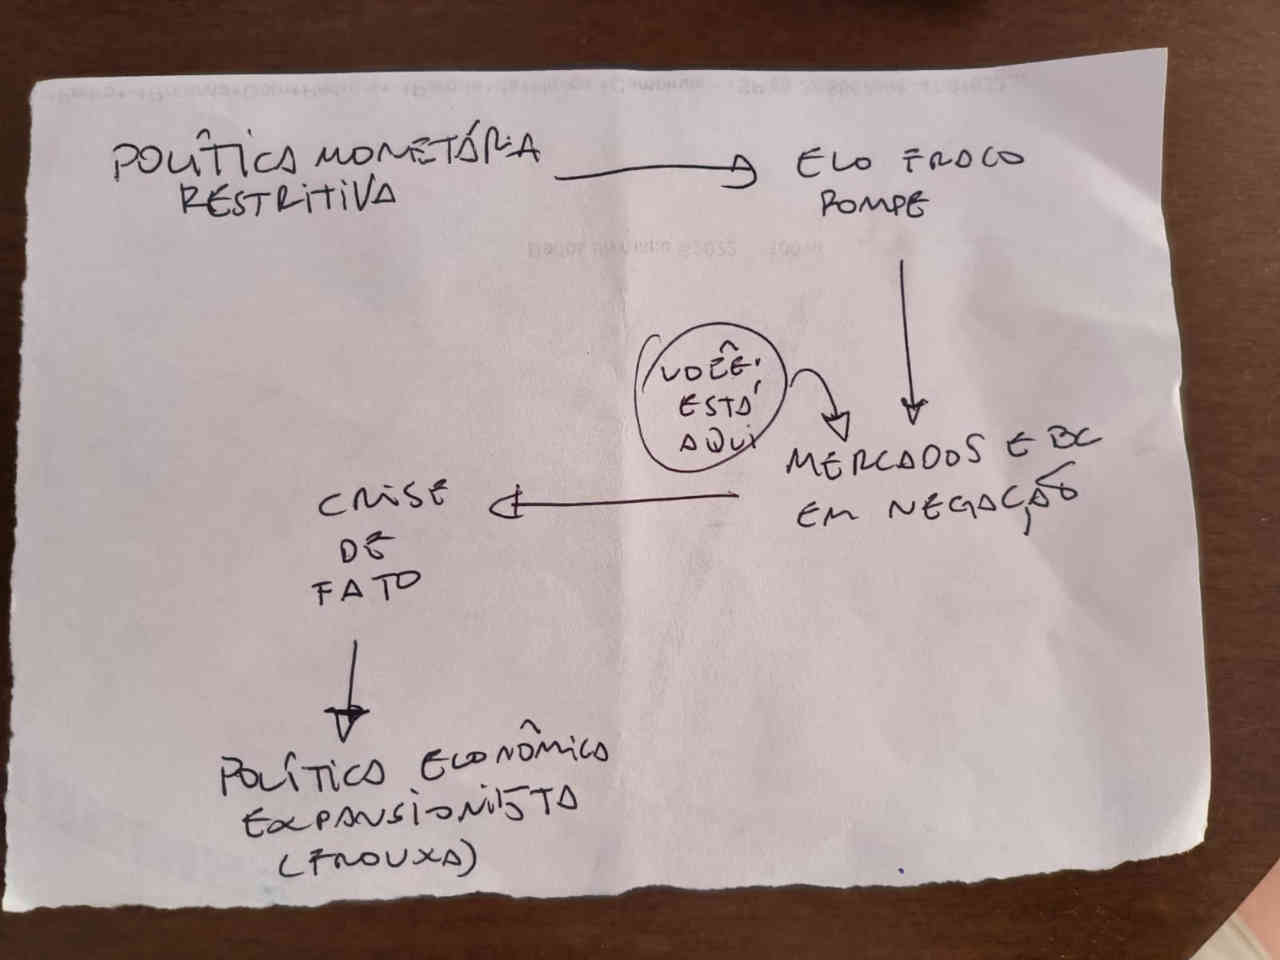 POLÍTICA MONETÁRIA
RESTRITIVA
ELO FRACO
ROMPE
VOCÊ
ESTÁ
AQUI
MERCADOS E BC
EM NEGAÇÃO
CRISE
DE
FATO
POLÍTICA ECONÔMICA
EXPANSIONISTA
(FROUXA)